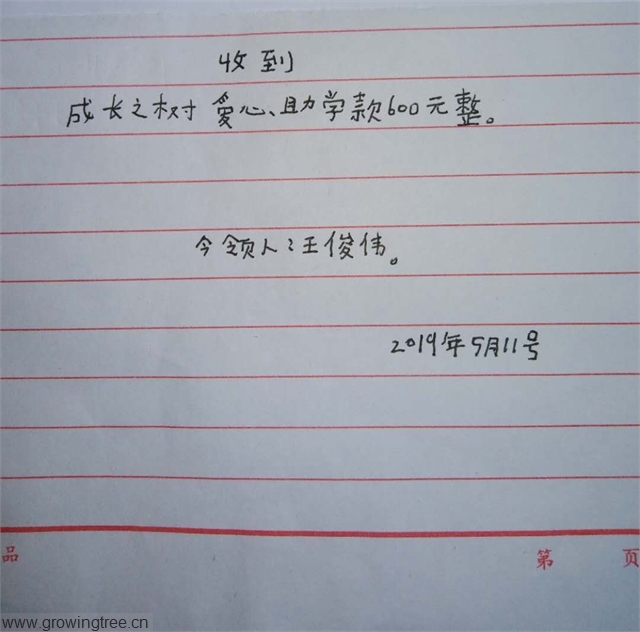 收到
成长之树 爱心、助学款600元整。
今领人:王俊伟。
2019年5月11号
品 第 页
www.growingtree.cn